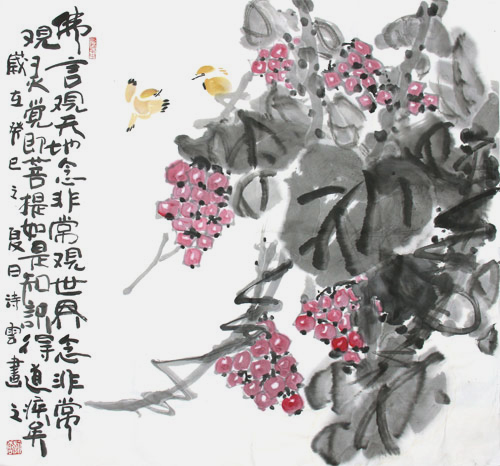 佛言观天地念非常觀世界念非常
观灵覺即菩提如是知識得道疾矣
歲在癸巳之夏日詩雲畫之